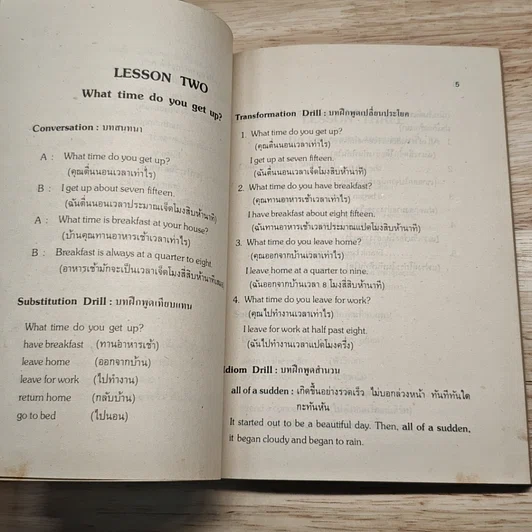 LESSON TWO
What time do you get up?
Conversation : บทสนทนา
A : What time do you get up?
(คุณตื่นนอนเวลาเท่าไร)
B : I get up about seven fifteen.
(ฉันตื่นนอนเวลาประมาณเจ็ดโมงสิบห้านาที)
A : What time is breakfast at your house?
(บ้านคุณทานอาหารเช้าเวลาเท่าไร)
B : Breakfast is always at a quarter to eight.
(อาหารเช้ามักจะเป็นเวลาเจ็ดโมงสี่สิบห้านาทีเสมอ)
Substitution Drill : บทฝึกพูดเทียบแทน
What time do you get up?
have breakfast (ทานอาหารเช้า)
leave home (ออกจากบ้าน)
leave for work (ไปทำงาน)
return home (กลับบ้าน)
go to bed (ไปนอน)
5
Transformation Drill : บทฝึกพูดเปลี่ยนประโยค
1. What time do you get up?
(คุณตื่นนอนเวลาเท่าไร)
I get up at seven fifteen.
(ฉันตื่นนอนเวลาเจ็ดโมงสิบห้านาที)
2. What time do you have breakfast?
(คุณทานอาหารเช้าเวลาเท่าไร)
I have breakfast about eight fifteen.
(ฉันทานอาหารเช้าเวลาประมาณแปดโมงสิบห้านาที)
3. What time do you leave home?
(คุณออกจากบ้านเวลาเท่าไร)
I leave home at a quarter to nine.
(ฉันออกจากบ้านเวลา 8 โมงสี่สิบห้านาที)
4. What time do you leave for work?
(คุณไปทำงานเวลาเท่าไร)
I leave for work at half past eight.
(ฉันไปทำงานเวลาแปดโมงครึ่ง)
Idiom Drill : บทฝึกพูดสำนวน
all of a sudden : เกิดขึ้นอย่างรวดเร็ว ไม่บอกล่วงหน้า ทันทีทันใด
กะทันหัน
It started out to be a beautiful day. Then, all of a sudden,
it began cloudy and began to rain.